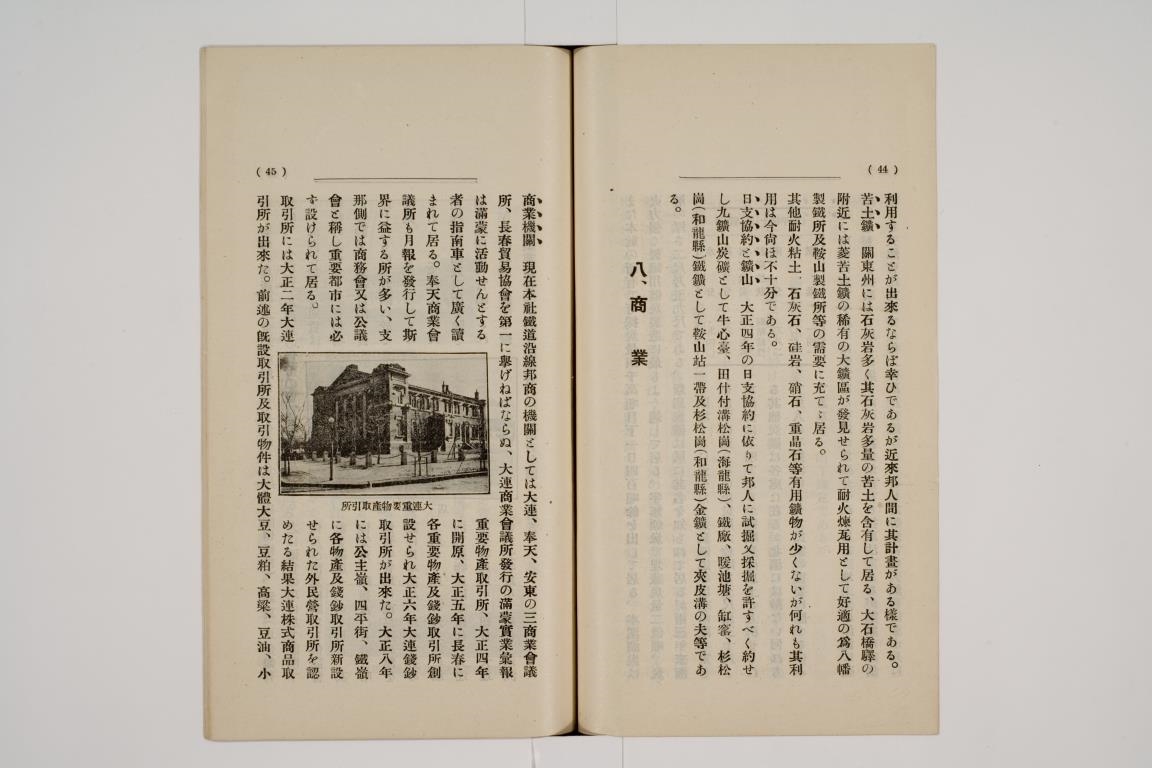 (44)
利用することが出來るならば幸ひであるが近來邦人間に其計畫がある樣である。
苦土鑛　關東州には石灰岩多く其石灰岩多量の苦土を含有して居る、大石橋驛の
附近には菱苦土鑛の稀有の大鑛區が發見せられて耐火煉瓦用として好適の爲八幡
製鐵所及鞍山製鐵所等の需要に充てゝ居る。
其他耐火粘土、石灰石、硅岩、硝石、重晶石等有用鑛物が少くないが何れも其利
用は今尙ほ不十分である。
日支協約と鑛山　大正四年の日支協約に依りて邦人に試掘又採掘を許すべく約せ
し九鑛山炭礦として牛心臺、田什付溝松崗(海龍縣)、鐵廠、暖池塘、缸窰、杉松
崗(和龍縣)鐵鑛として鞍山站一帶及杉松崗(和龍縣)金鑛として夾皮溝の夫等であ
る。
八、商業
(45)
商業機關　現在本社鐵道沿線邦商の機關としては大連、奉天、安東の三商業會議
所、長春貿易協會を第一に擧げねばならぬ、大連商業會議所發行の滿蒙實業彙報
は滿蒙に活動せんとする
者の指南車として廣く讀
まれて居る。奉天商業會
議所も月報を發行して斯
界に益する所が多い、支
那側では商務會又は公議
會と稱し重要都市には必
す設けられて居る。
取引所には大正二年大連
重要物產取引所、大正四年
に開原、大正五年に長春に
各重要物產及錢鈔取引所創
設せられ大正六年大連錢鈔
取引所が出來た。大正八年
には公主嶺、四平街、鐵嶺
に各物產及錢鈔取引所新設
せられた外民營取引所を認
めたる結果大連株式商品取
引所が出來た。前述の旣設取引所及取引物件は大體大豆、豆粕、高粱、豆油、小
大連重要物產取引所